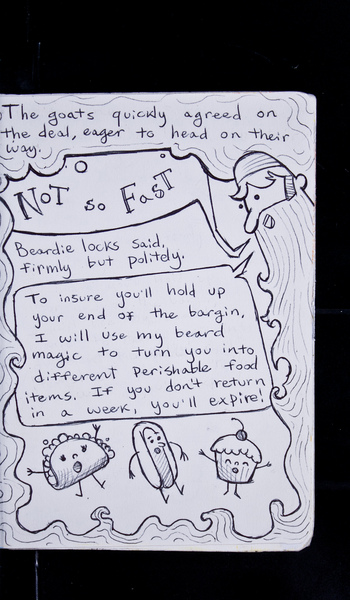 The goats quickly agreed on
the deal, eager to head on their
way.
NoT so FasT
Beardie locks said,
firmly but politely.
To insure you'll hold up
your end of the bargin,
I will use my beard
magic to turn you into
different perishable food
items. If you don't return
in a week, you'll expire!